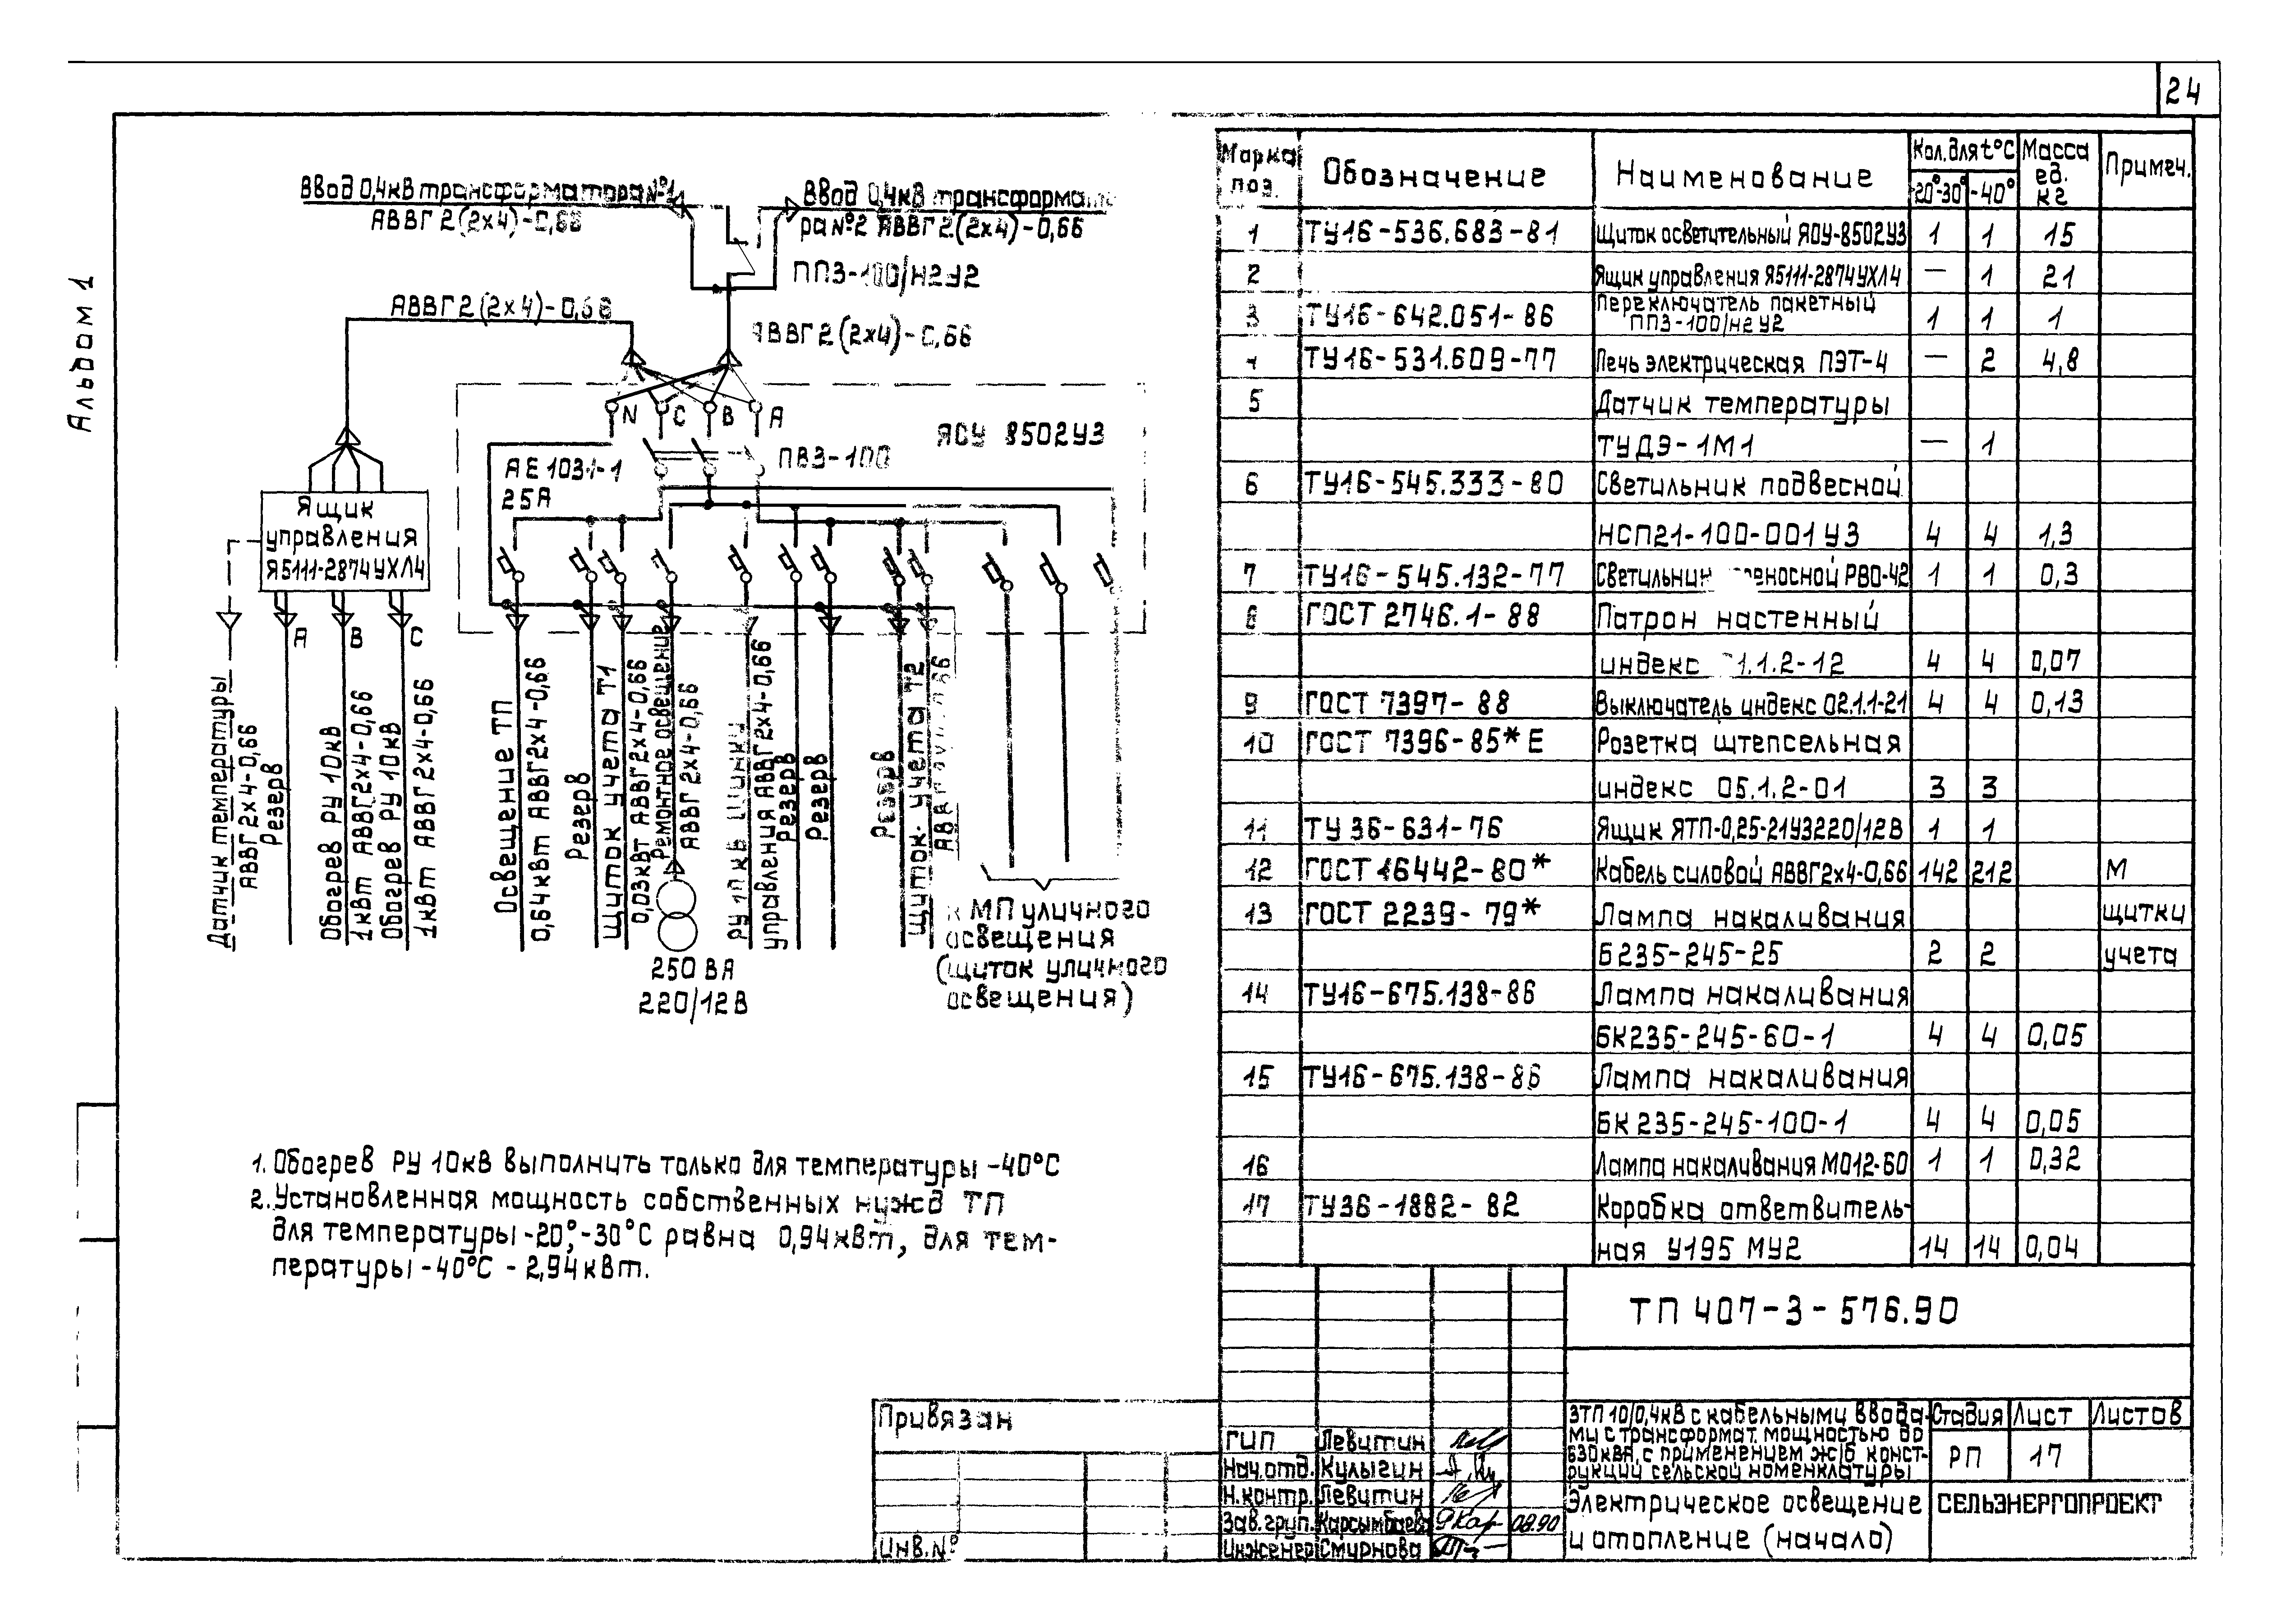 24
Альбом 1
Ввод 0,4кВ трансформатора №1
АВВГ 2(2х4)-0,66
Ввод 0,4кВ трансформато-
ра №2 АВВГ 2(2х4)-0,66
ПП3-100/Н2У2
АВВГ 2(2х4)-0,66
АВВГ 2(2х4)-0,66
N С В А
ЯОУ 8502У3
ПВ3-100
АЕ1031-1
25А
Ящик
управления
Я5111-2874УХЛ4
А В С
Датчик температуры
АВВГ 2х4-0,66
Резерв
Обогрев РУ 10кВ
1кВт АВВГ2х4-0,66
Обогрев РУ 10кВ
1кВт АВВГ2х4-0,66
Освещение ТП
0,64кВт АВВГ2х4-0,66
Резерв
Щиток учета Т1
0,03кВт АВВГ2х4-0,66
Ремонтное освещение
АВВГ 2х4-0,66
250 ВА
220/12В
РУ 10кВ Шинки
управления АВВГ2х4-0,66
Резерв
Резерв
Резерв
Щиток учета Т2
к МП уличного
освещения
(щиток уличного
освещения)
1. Обогрев РУ 10кВ выполнить только для температуры -40°С
2. Установленная мощность собственных нужд ТП
для температуры -20°, -30°С равна 0,94кВт, для тем-
пературы -40°С - 2,94кВт.
Марка поз. Обозначение Наименование Кол. для t°С -20°-30° -40° Масса ед. кг Примеч.
1 ТУ16-536.683-81 Щиток осветительный ЯОУ-8502У3 1 1 15
2 Ящик управления Я5111-2874УХЛ4 — 1 21
3 ТУ16-642.051-86 Переключатель пакетный
ПП3-100/Н2У2 1 1 1
4 ТУ16-531.609-77 Печь электрическая ПЭТ-4 — 2 4,8
5 Датчик температуры
ТУДЭ-1М1 — 1
6 ТУ16-545.333-80 Светильник подвесной
НСП21-100-001У3 4 4 1,3
7 ТУ16-545.132-77 Светильник переносной РВО-42 1 1 0,3
8 ГОСТ 2746.1-88 Патрон настенный
индекс 1.1.2-12 4 4 0,07
9 ГОСТ 7397-88 Выключатель индекс 02.1.1-21 4 4 0,13
10 ГОСТ 7396-85*Е Розетка штепсельная
индекс 05.1.2-01 3 3
11 ТУ 36-631-76 Ящик ЯТП-0,25-21У3220/12В 1 1
12 ГОСТ 16442-80* Кабель силовой АВВГ2х4-0,66 142 212 М
13 ГОСТ 2239-79* Лампа накаливания щитки
Б235-245-25 2 2 учета
14 ТУ16-675.138-86 Лампа накаливания
БК235-245-60-1 4 4 0,05
15 ТУ16-675.138-86 Лампа накаливания
БК235-245-100-1 4 4 0,05
16 Лампа накаливания МО12-60 1 1 0,32
17 ТУ36-1882-82 Коробка ответвитель-
ная У195 МУ2 14 14 0,04
ТП 407-3-576.90
Привязан
Инв.№
ГИП Левитин
Нач.отд. Кулыгин
Н.контр. Левитин
Зав.груп. Карсымбаева 08.90
Инженер Смирнова
ЗТП 10/0,4кВ с кабельными ввода-
ми с трансформат. мощностью до
630кВА, с применением ж/б конст-
рукций сельской номенклатуры
Стадия Лист Листов
РП 17
Электрическое освещение
и отопление (начало)
СЕЛЬЭНЕРГОПРОЕКТ